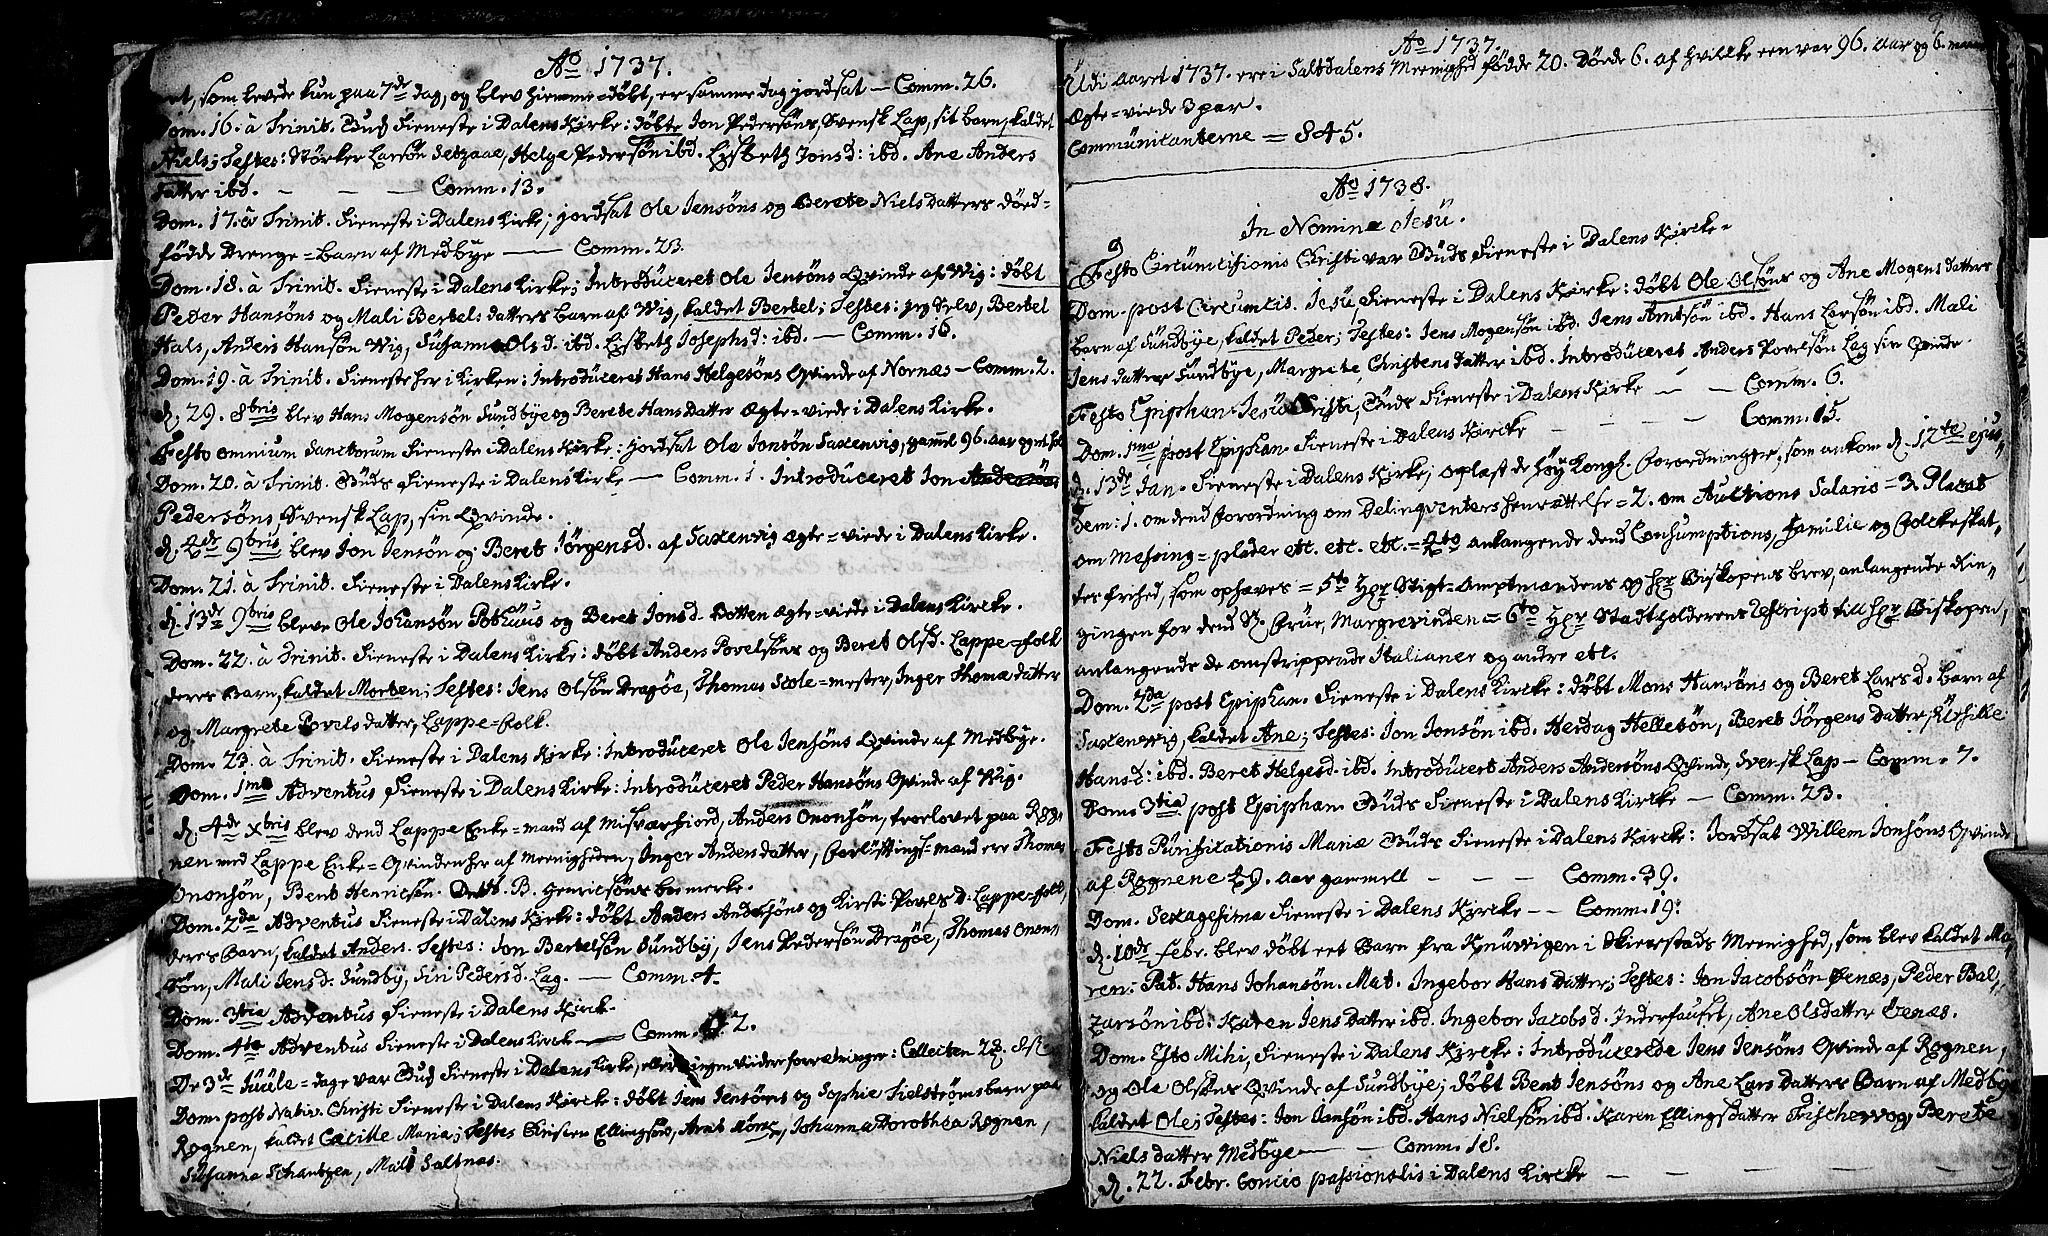 Ao 1737.
et, som levede kun paa 7de dag, og blev hiemme=døbt, er samme dag jordsat — Comm. 26.
Dom. 16. à Trinit. Buds Tieneste i Dalens Kirke: døbte Jon Pedersøns, Svensk Lap, sit barn, kaldet
Niels; Testes: Størker Larsøn Setzaae, Helge Pedersøn ibd. Lisbeth Jonsd: ibd. Ane Anders
datter ibd. — — — Comm. 13.
Dom. 17. à Trinit. Tieneste i Dalens Kirke; jordsat Ole Jensøns og Berete Niels Datters død=
fødde Drenge=barn af Medbye — Comm. 23.
Dom. 18. à Trinit. Tieneste i Dalens Kirke; Introduceret Ole Jensøns Qvinde af Wig: døbt
Peder Hansøns og Mali Bertels datters barn af Wig, kaldet Bertel; Testes: jeg selv, Bertel
Hals, Anders Hansøn Wig, Susanna Olsd. ibd. Lisbeth Josephsd: ibd. — Comm. 16.
Dom. 19. à Trinit. Tieneste her i Kirken: Introduceret Hans Helgesøns Qvinde af Nornæs — Comm. 2.
d. 29. 8bris blev Hans Mogensøn Sundbye og Berete Hans Datter Ægte=viede i Dalens Kirke.
Festo omnium Sanctorum Tieneste i Dalens Kirke: jordsat Ole Jonsøn Saxenvig, gamel 96. aar og
Dom. 20. à Trinit. Buds Tieneste i Dalens Kirke — Comm. 1. Introduceret Jon
Pedersøns, Svensk Lap, sin Qvinde.
d. 2de 9bris blev Jon Jensøn og Beret Jørgensd. af Saxenvig ægte=viede i Dalens Kirke.
Dom. 21. à Trinit. Tieneste i Dalens Kirke.
d. 13de 9bris bleve Ole Johansøn Pothuus og Beret Jonsd. Botten ægte=viede i Dalens Kircke.
Dom. 22. à Trinit. Tieneste i Dalens Kirke: døbt Anders Povelsøns og Beret Olsd. Lappe=folk
deres Barn, kaldet Morten; Testes: Jens Olsøn Dragøe, Thomas Scole=mester, Inger Thomædatter
og Margrete Povels datter, Lappe=folk.
Dom. 23. à Trinit. Tieneste i Dalens Kirke: Introduceret Ole Jensøns Qvinde af Medbye.
Dom. 1ma Adventus Tieneste i Dalens Kirke: Introduceret Peder Hansøns Qvinde af Wig.
d. 4de Xbris blev dend Lappe Enke=mand af Misværfiord, Anders Ononsøn, troelovet paa Rog=
nen med Lappe Enke=Qvinden her af Menigheden, Inger Anders datter, forløftings=mænd ere Thomas
Ononsøn, Bent Henricsøn. B. Henricsøns bomerke.
Dom. 2da Adventus Tieneste i Dalens Kirke: døbt Anders Andersøns og Kirsti Povelsd. Lappe=folk,
deres Barn, kaldet Anders. Testes: Jon Bertelsøn Sundby, Jens Pedersøn Dragøe, Thomas Onon
søn, Mali Jensd. Sundby, Siri Pedersd. Lag. — Comm. 4.
Dom. 3tia Adventus Tieneste i Dalens Kirck.
Dom. 4ta Adventus Tieneste i Dalens Kirck — Comm. 2.
De 3de Juule=dage var Buds Tieneste i Dalens Kirke, ellers ingen videre forretninger: Collecten
Dom. post Nativ. Christi Tieneste i Dalens Kircke: døbt Jens Jensøns og Sophie Fielstrøms barn paa
Rognen, kaldet Cæcilie Maria; Testes Christen Ellingsøn, Arnt, Johanna Dorothea Rognen,
Susanna Schantzen, Mali Saltnæs.
9
Ao 1737.
Udi aaret 1737. ere i Saltdalens Meenighed fødde 20. Døde 6. af hvilcke een var 96. aar og 6. maan
Ægte=viede 3 par.
Communicanterne = 845.
Ao 1738.
In Nomine Jesu.
Festo Circumcisionis Christi var Buds Tieneste i Dalens Kircke.
Dom. post Circumcis. Jesu, Tieneste i Dalens Kirke: døbt Ole Olsøns og Ane Mogens datters
barn af Sundbye, kaldet Peder; Testes: Jens Mogensøn ibd. Jens Arntsøn ibd. Hans Larsøn ibd. Mali
Jens datter Sundbye, Margrete Christens datter ibd. Introduceret Anders Povelsøn Lag sin Qvinde.
Festo Epiphan. Jesu Christi, Buds Tieneste i Dalens Kirke — — Comm. 6.
Dom. 1ma post Epiphan. Tieneste i Dalens Kircke — — — — Comm. 15.
d. 13de Jan. Tieneste i Dalens Kirke; oplæst de høy Kongl. Forordninger, som ankom d. 12te ejus=
dem: 1. om dend Forordning om Delinqventers henrættelse = 2. om Auctions Salario = 3. Placat
om Messing=plader etc. etc. etc. = 4to anlangende dend Consumptions, Familie og Folckeskat=
tes frihed, som ophæves = 5to Hr Stigt=Amptmandens og Hr Biskopens brev, anlangende Rin=
gingen for dend Frue, Margrevinden = 6to Hr Stadtholderens rescript till Hr Biskopen,
anlangende de omstrippende Italianer og andre etc.
Dom. 2da post Epiphan. Tieneste i Dalens Kircke: døbt Mons Hansøns og Beret Lars d. barn af
Saxenvig, kaldet Ane; Testes: Jon Jonsøn ibd. Herdag Hellesøn, Beret Jørgens datter,
Hansd: ibd. Beret Helgesd. ibd. Introduceret Anders Andersøns Qvinde, Svensk Lap — Comm. 7.
Dom. 3tia post Epiphan. Buds Tieneste i Dalens Kircke — Comm. 23.
Festo Purificationis Mariæ Buds Tieneste i Dalens Kircke: Jordsat Willem Jonsøns Qvinde
af Rognene 49. aar gammell — — — Comm. 39.
Dom. Sexagesima Tieneste i Dalens Kircke — — Comm. 19.
d. 10de Febr. blev døbt eet Barn fra Knurvigen i Skierstads Meenighed, som blev kaldet Ma=
ren. Pat. Hans Johansøn. Mat. Ingebor Hans datter; Testes: Jon Jacobsøn Øenæs, Peder Bal=
zarsøn ibd. Karen Jens Datter ibd. Ingebor Jacobs d. Inderfauset, Ane Olsdatter Øenæs.
Dom. Esto Mihi, Tieneste i Dalens Kircke: Introducerede Jens Jensøns Qvinde af Rognen,
og Ole Olsøns Qvinde af Sundbye; døbt Bent Jensøns og Ane Lars Datters Barn af Medbye
kaldet Ole; Testes: Jon Jonsøn ibd. Hans Nielsøn ibd. Karen Ellingsdatter Fischervog, Berete
Niels datter Medbye — — Comm. 18.
d. 22. Febr. Concio passionalis i Dalens Kircke — — — — —